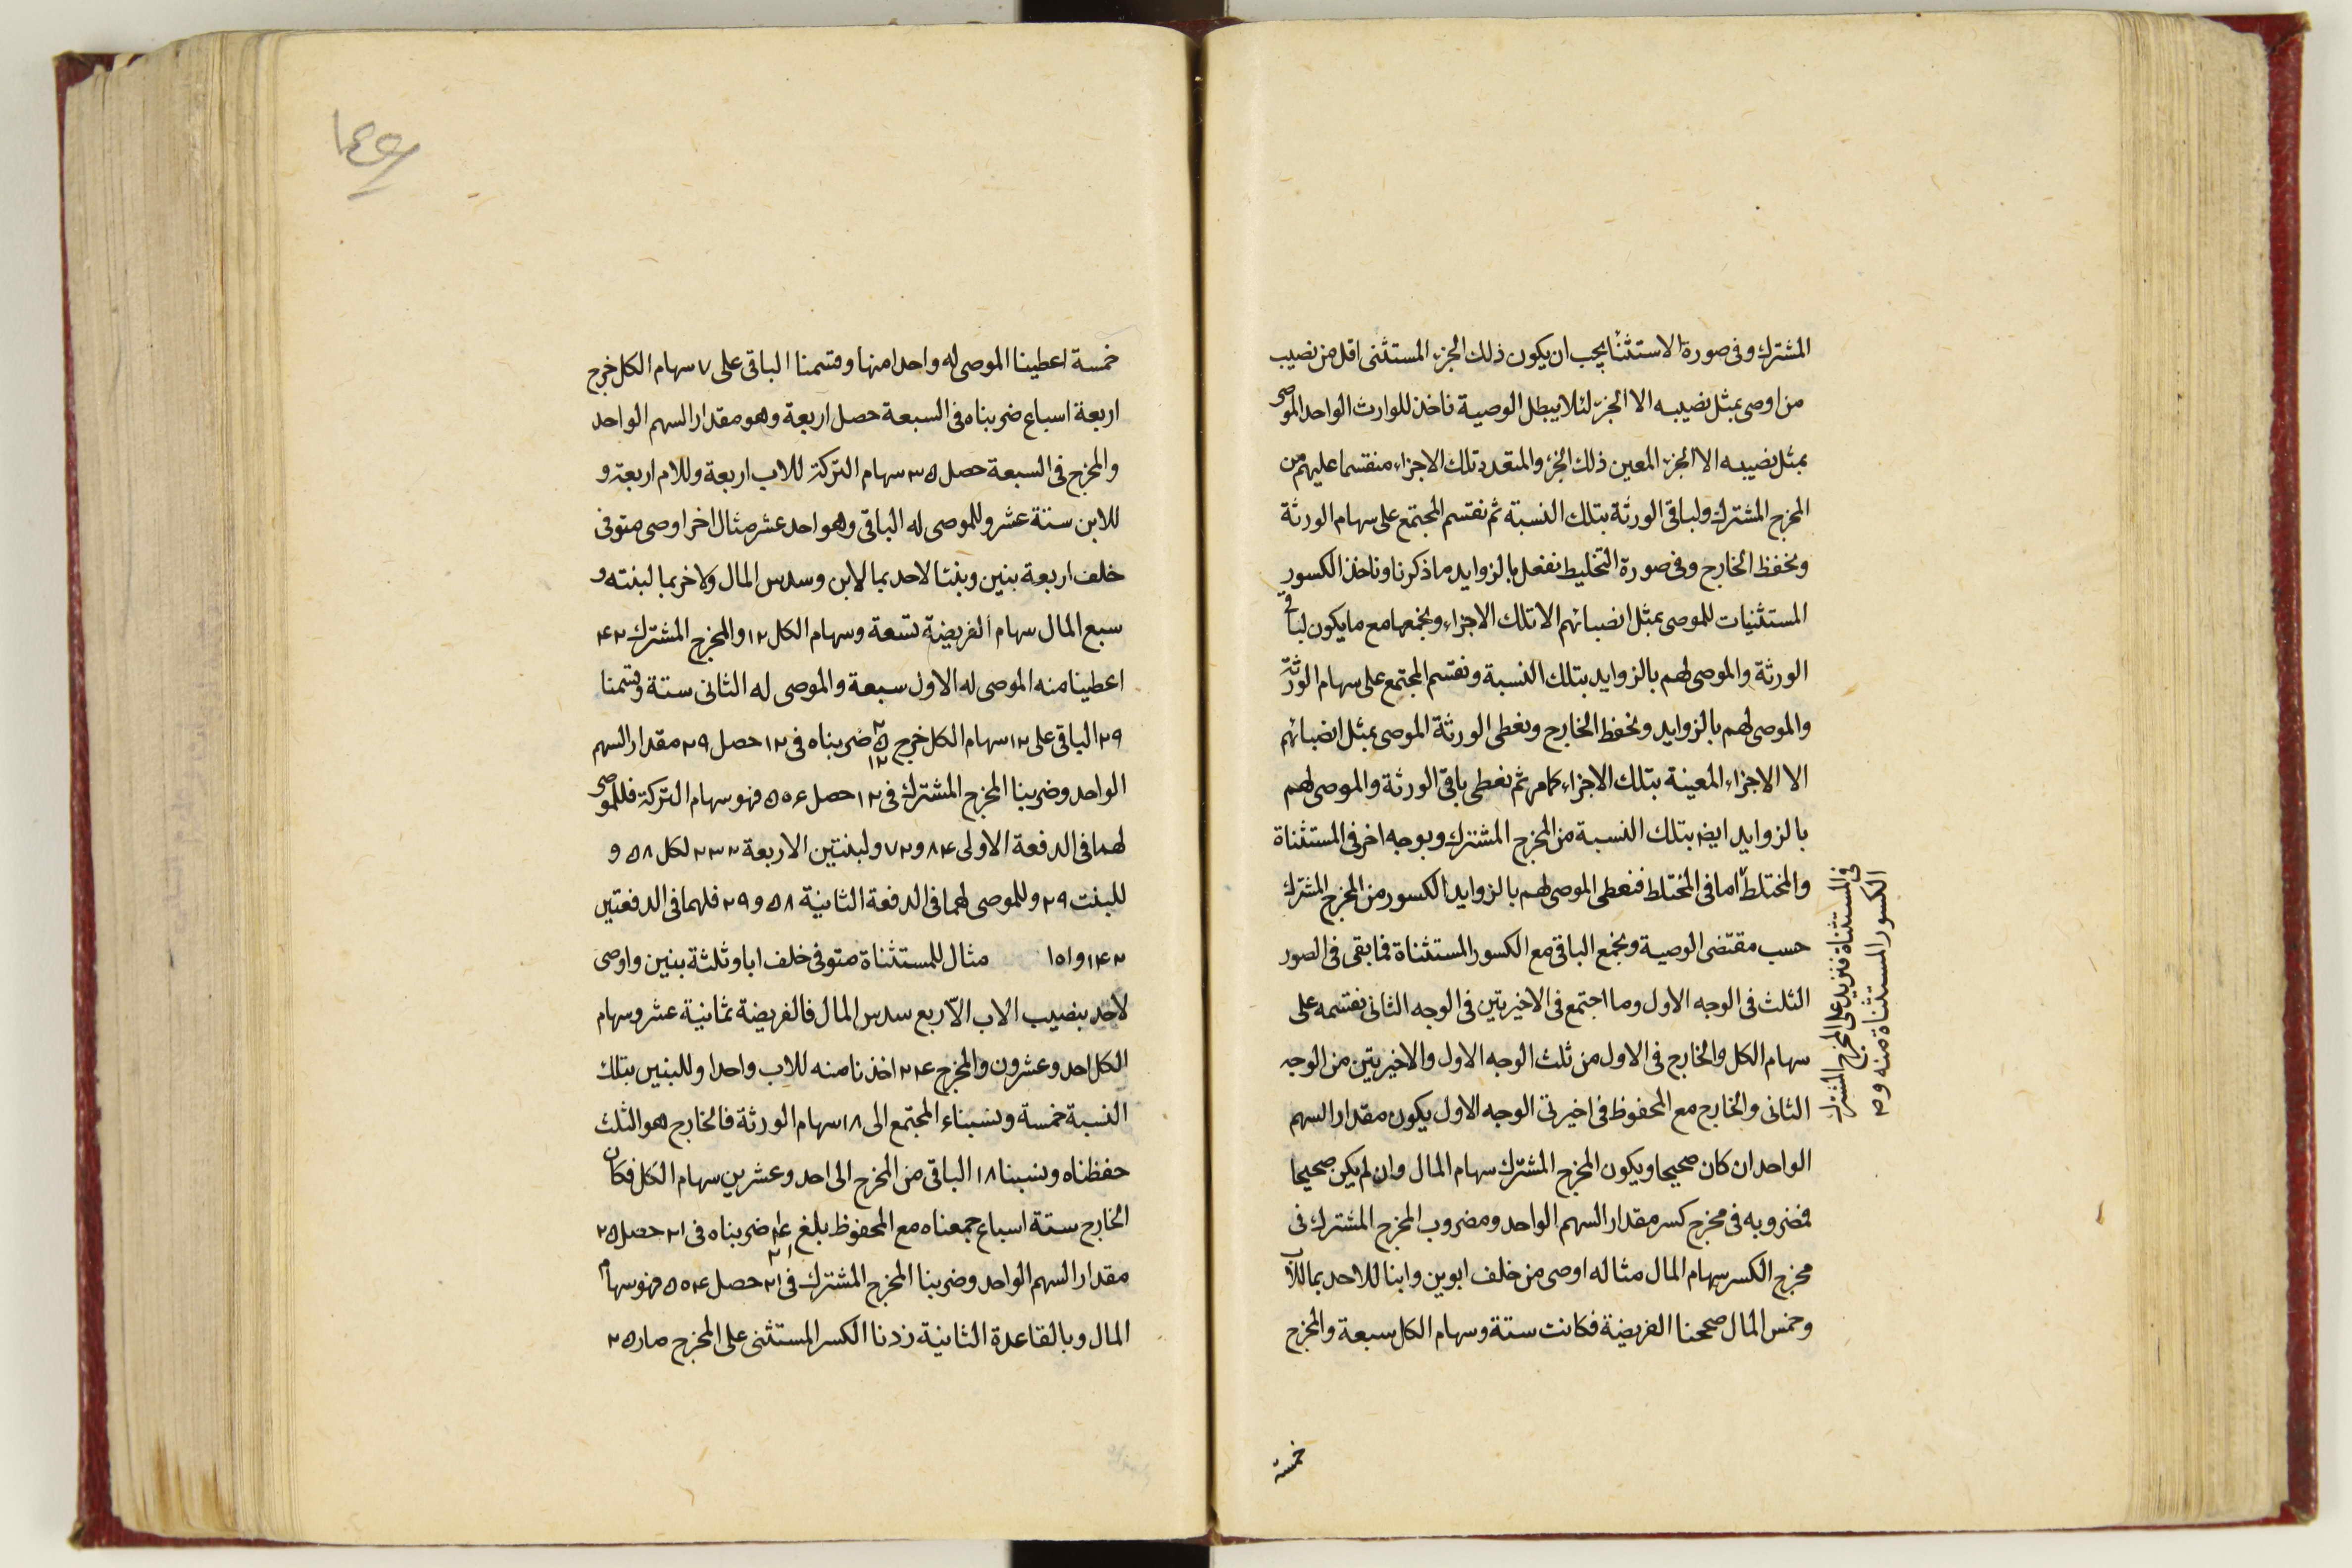 المشترك وفى صورة الاستثنا يجب ان يكون ذلك الجزء المستثنى اقل من نصيب
من اوصى بمثل نصيبه الا الجزء لئلا يبطل الوصية ناخذ للوارث الواحد الموصى
بمثل نصيبه الا الجزء المعين ذلك الجزء والمتعدد تلك الاجزاء منقسما عليهم من
المخرج المشترك ولباقى الورثة بتلك النسبة ثم نقسم المجتمع على سهام الورثة
ونحفظ الخارج وفى صورة التخليط نفعل بالزوايد ما ذكرنا وناخذ الكسور
المستثنيات للموصى بمثل انصبائهم الا تلك الاجزاء ونجمعها مع ما يكون لباقى
الورثة والموصى لهم بالزوايد بتلك النسبة ونقسم المجتمع على سهام الورثة
والموصى لهم بالزوايد ونحفظ الخارج ونعطى الورثة الموصى بمثل انصبائهم
الا الاجزاء المعينة بتلك الاجزاء كما مر ثم نعطى باقى الورثة والموصى لهم
بالزوايد ايضا بتلك النسبة من المخرج المشترك وبوجه اخر فى المستثناة
والمختلط اما فى المختلط فنعطى الموصى لهم بالزوايد الكسور من المخرج المشترك
حسب مقتضى الوصية ونجمع الباقى مع الكسور المستثناة فما بقى فى الصور
الثلث فى الوجه الاول وما اجتمع فى الاخيرتين فى الوجه الثانى نقسمه على
سهام الكل والخارج فى الاول من ثلث الوجه الاول والاخيرتين من الوجه
الثانى والخارج مع المحفوظ فى اخيرتى الوجه الاول يكون مقدار السهم
الواحد ان كان صحيحا ويكون المخرج المشترك سهام المال وان لم يكن صحيحا
فمضروبه فى مخرج كسر مقدار السهم الواحد ومضروب المخرج المشترك فى
مخرج الكسر سهام المال مثاله اوصى من خلف ابوين وابنا للاحد بما للاب
وخمس المال صححنا الفريضة فكانت ستة وسهام الكل سبعة والمخرج
فى المستثناة فنزيد على المخرج المشترك
الكسور المستثناة منه
خمسة
خمسة اعطينا الموصى له واحدا منها وقسمنا الباقى على ٧ سهام الكل خرج
اربعة اسباع ضربناه فى السبعة حصل اربعة وهو مقدار السهم الواحد
والمخرج فى السبعة حصل ٣٥ سهام التركة للاب اربعة وللام اربعة و
للابن ستة عشر وللموصى له الباقى وهو احد عشر مثال اخر اوصى متوفى
خلف اربعة بنين وبنتا لاحد بما لابن وسدس المال ولاخر بما لبنته و
سبع المال سهام الفريضة تسعة وسهام الكل ١٢ والمخرج المشترك ۴٢
اعطينا منه الموصى له الاول سبعة والموصى له الثانى ستة وقسمنا
٢٩ الباقى على ١٢ سهام الكل خرج ٢ ٥ ١٢ ضربناه فى ١٢ حصل ٢٩ مقدار السهم
الواحد وضربنا المخرج المشترك فى ١٢ حصل ۵٠۴ فهو سهام التركة فللموصى
لهما فى الدفعة الاولى ٨۴ و ٧٢ ولبنتين الاربعة ٢٣٢ لكل ٥٨ و
للبنت ٢٩ وللموصى لهما فى الدفعة الثانية ٥٨ و ٢٩ فلهما فى الدفعتين
١۴٢ و ١٠١ مثال للمستثناة متوفى خلف ابا وثلثة بنين واوصى
لاحد بنصيب الاب الا ربع سدس المال فالفريضة ثمانية عشر وسهام
الكل احد وعشرون والمخرج ٢۴ اخذنا منه للاب واحدا وللبنين بتلك
النسبة خمسة ونسبناء المجتمع الى ١٨ سهام الورثة فالخارج هو الثلث
حفظناه ونسبنا ١٨ الباقى من المخرج الى احد وعشرين سهام الكل فكان
الخارج ستة اسباع جمعناه مع المحفوظ بلغ ١ ۴ ٢١ ضربناه فى ٢١ حصل ٢٥
مقدار السهم الواحد وضربنا المخرج المشترك فى ٢١ حصل ٥٠۴ فهو سهام
المال وبالقاعدة الثانية زدنا الكسر المستثنى على المخرج صار ٢٥